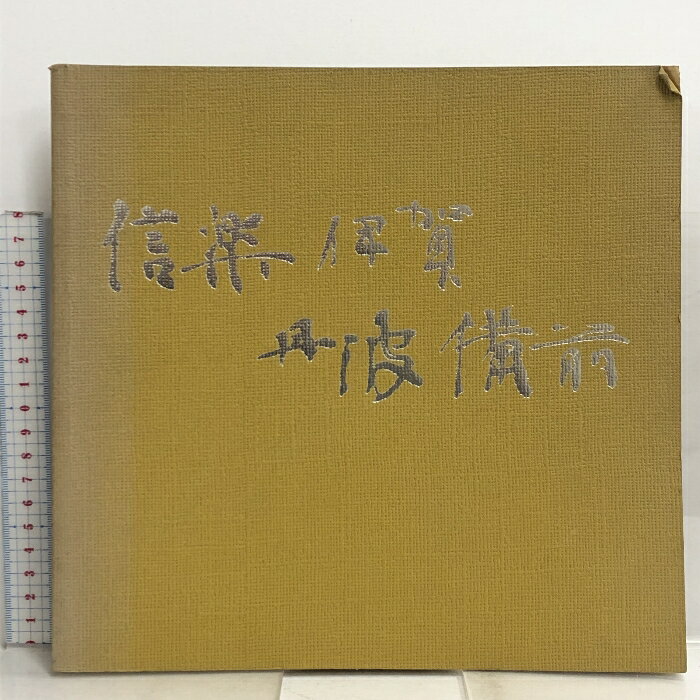 信楽 伊賀
丹波 備前